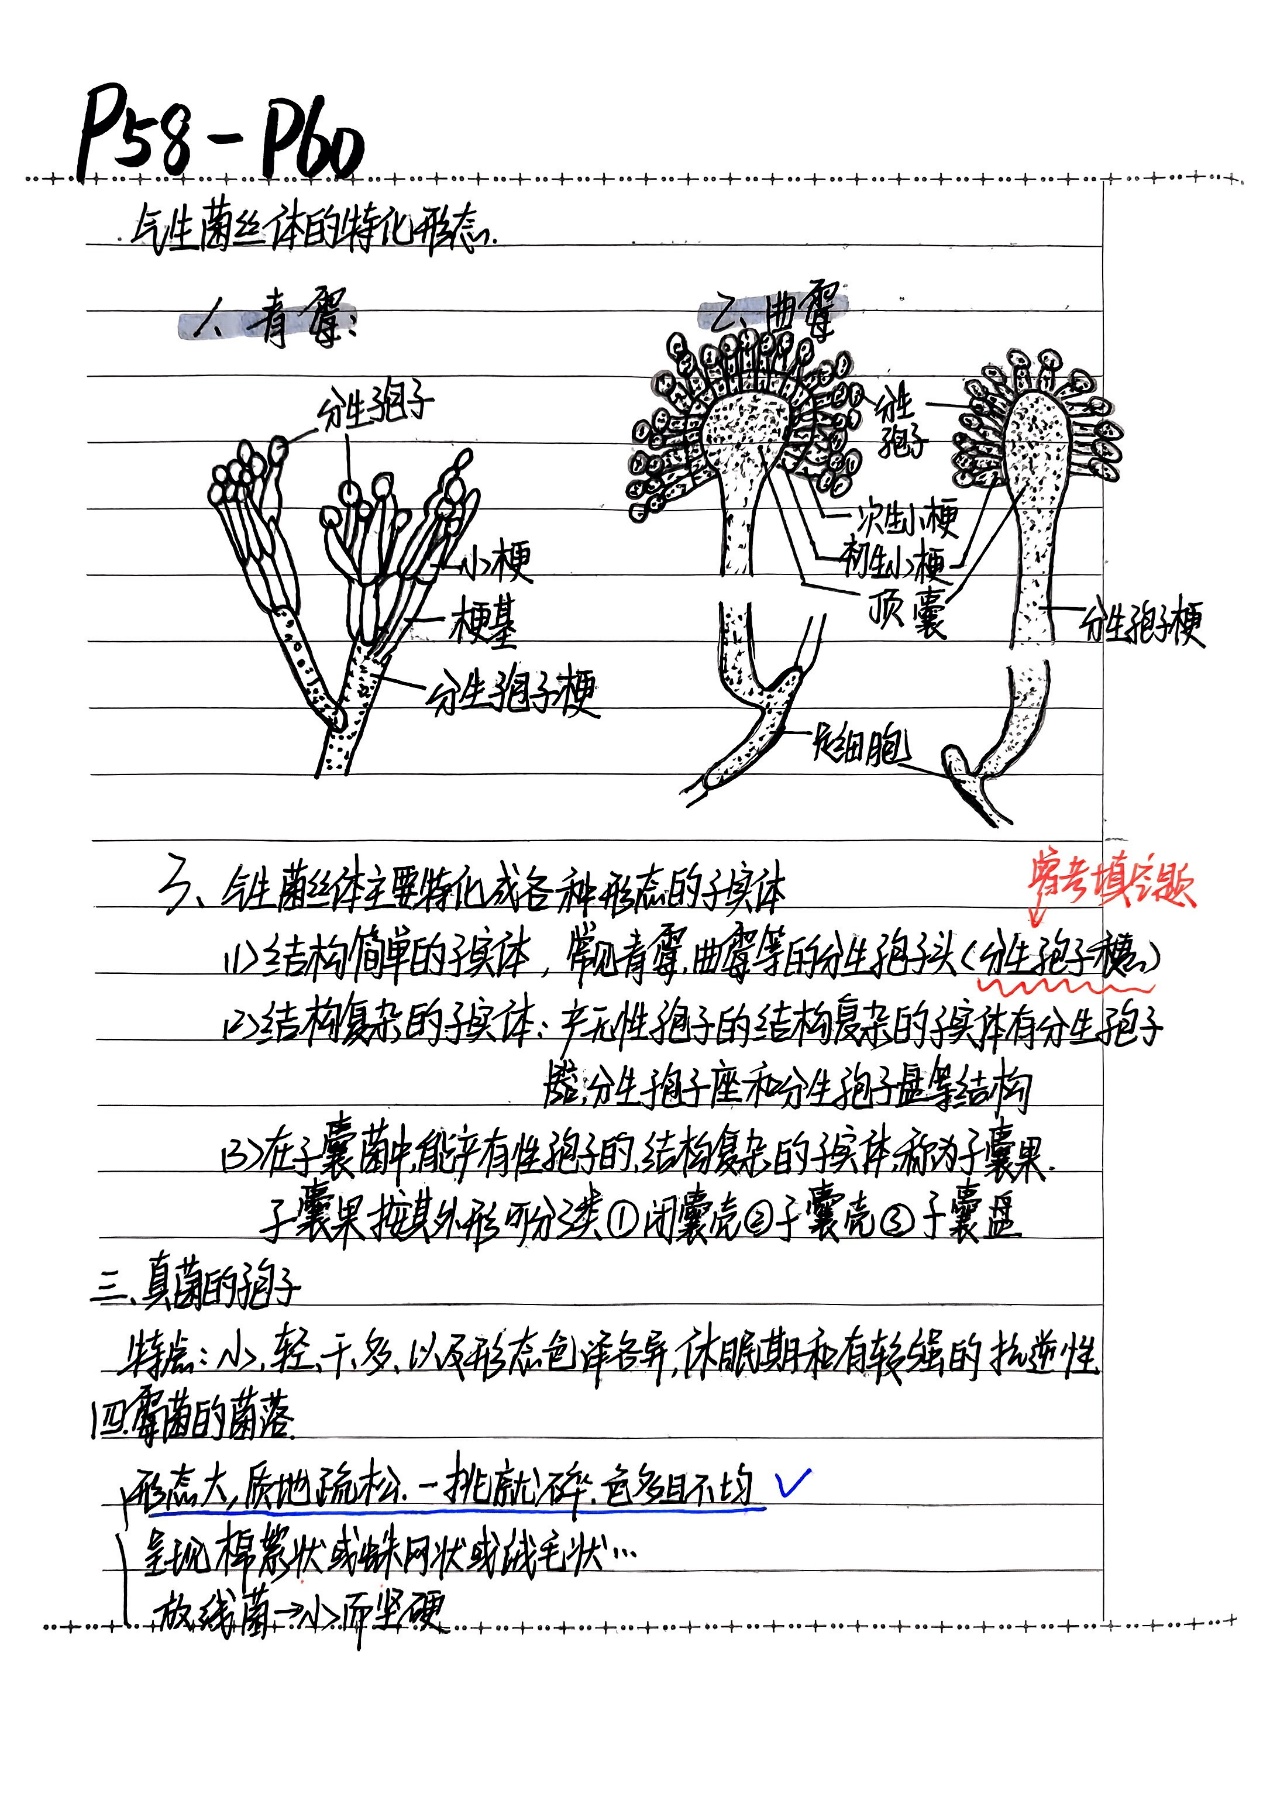 P58-P60
气生菌丝体的特化形态.
1、青霉:
2、曲霉
分生孢子
小梗
梗基
分生孢子梗
分生
孢子
次生小梗
初生小梗
顶囊
分生孢子梗
足细胞
3、气生菌丝体主要特化成各种形态的子实体
常考填空题
(1)结构简单的子实体,常见青霉.曲霉等的分生孢子头(分生孢子穗)
(2)结构复杂的子实体:产无性孢子的结构复杂的子实体有分生孢子
器,分生孢子座和分生孢子盘等结构
(3)在子囊菌中,能产有性孢子的,结构复杂的子实体,称为子囊果.
子囊果按其外形可分3类①闭囊壳②子囊壳③子囊盘
三、真菌的孢子
特点:小、轻、干、多、以及形态色泽各异,休眠期和有较强的抗逆性
四.霉菌的菌落.
形态大,质地疏松.一挑就碎.色多且不均 ✓
呈现棉絮状或蛛网状或绒毛状…
放线菌→小而坚硬